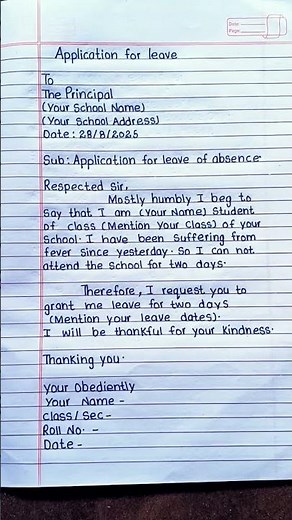 Date:
Page:
Application for leave
To
The Principal
(Your School Name)
(Your School Address)
Date: 28/8/2025
Sub: Application for leave of absence
Respected Sir,
Mostly humbly I beg to
Say that I am (Your Name) Student
of class (Mention Your Class) of your
School. I have been suffering from
fever since yesterday. So I can not
attend the school for two days.
Therefore, I request you to
grant me leave for two days
(Mention your leave dates).
I will be thankful for your kindness.
Thanking you.
Your Obediently
Your Name -
Class/Sec -
Roll No. -
Date -